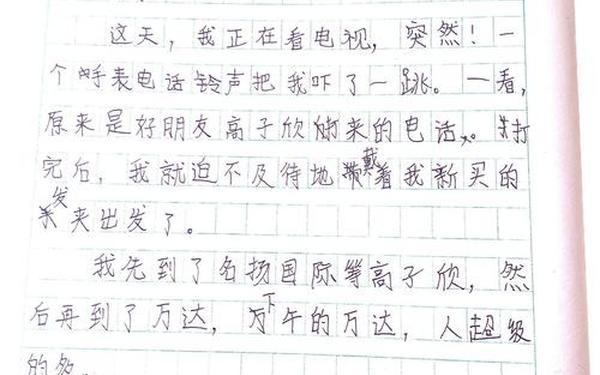 这天，我正在看电视，突然！一
个手表电话铃声把我吓了一跳。一看，
原来是好朋友高子欣打来的电话。打
完后，我就迫不及待地戴着我新买的
发夹出发了。
我先到了名扬国际等高子欣，然
后再到了万达，下午的万达，人超级
的多。